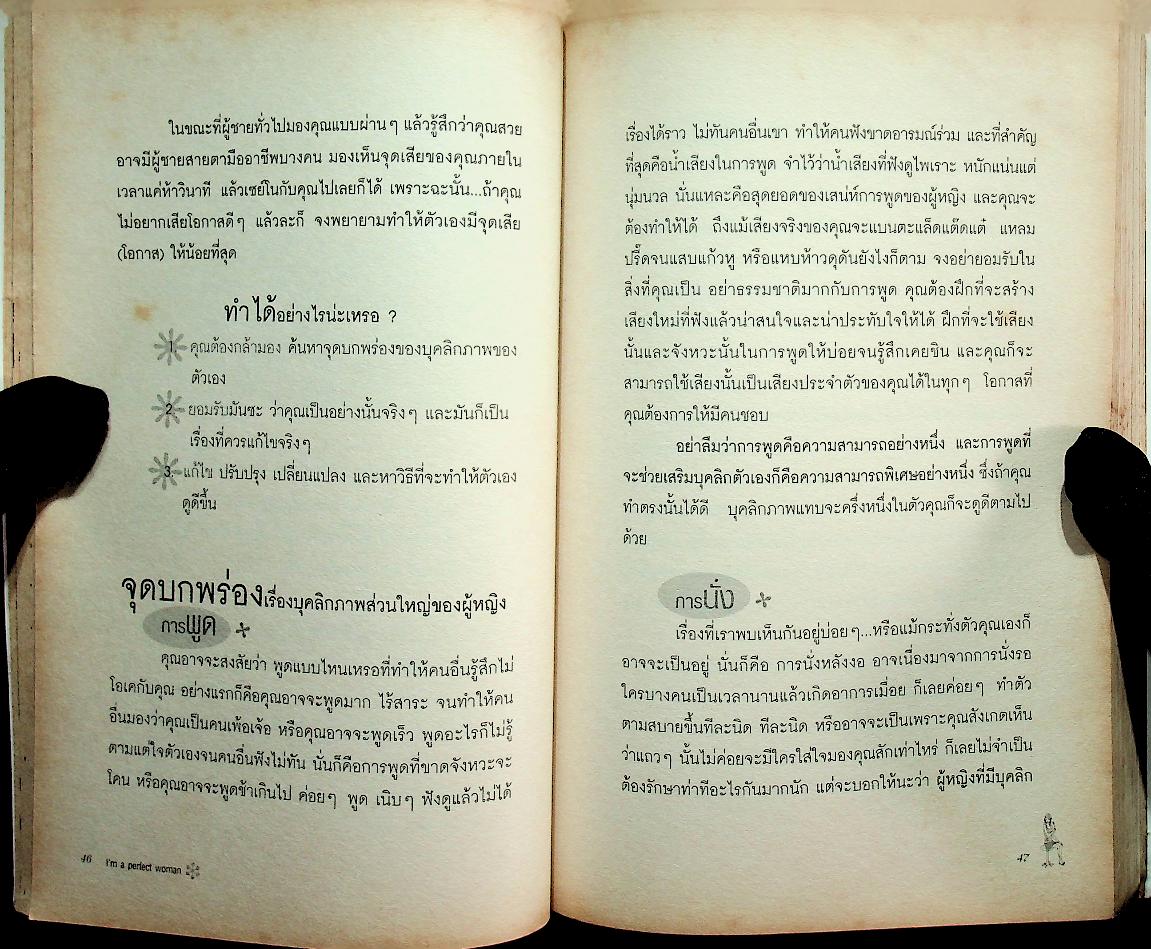 ในขณะที่ผู้ชายทั่วไปมองคุณแบบผ่านๆ แล้วรู้สึกว่าคุณสวย
อาจมีผู้ชายสายตามืออาชีพบางคน มองเห็นจุดเสียของคุณภายใน
เวลาแค่ห้าวินาที แล้วเซย์โนกับคุณไปเลยก็ได้ เพราะฉะนั้น...ถ้าคุณ
ไม่อยากเสียโอกาสดีๆ แล้วละก็ จงพยายามทำให้ตัวเองมีจุดเสีย
(โอกาส) ให้น้อยที่สุด
ทำได้อย่างไรน่ะเหรอ ?
1. คุณต้องกล้ามอง ค้นหาจุดบกพร่องของบุคลิกภาพของ
ตัวเอง
2. ยอมรับมันซะ ว่าคุณเป็นอย่างนั้นจริงๆ และมันก็เป็น
เรื่องที่ควรแก้ไขจริงๆ
3. แก้ไข ปรับปรุง เปลี่ยนแปลง และหาวิธีที่จะทำให้ตัวเอง
ดูดีขึ้น
จุดบกพร่องเรื่องบุคลิกภาพส่วนใหญ่ของผู้หญิง
การพูด
คุณอาจจะสงสัยว่า พูดแบบไหนเหรอที่ทำให้คนอื่นรู้สึกไม่
โอเคกับคุณ อย่างแรกก็คือคุณอาจจะพูดมาก ไร้สาระ จนทำให้คน
อื่นมองว่าคุณเป็นคนเพ้อเจ้อ หรือคุณอาจจะพูดเร็ว พูดอะไรก็ไม่รู้
ตามแต่ใจตัวเองจนคนอื่นฟังไม่ทัน นั่นก็คือการพูดที่ขาดจังหวะจะ
โคน หรือคุณอาจจะพูดช้าเกินไป ค่อยๆ พูด เนิบๆ ฟังดูแล้วไม่ได้
46 I'm a perfect woman
เรื่องได้ราว ไม่ทันคนอื่นเขา ทำให้คนฟังขาดอารมณ์ร่วม และที่สำคัญ
ที่สุดคือน้ำเสียงในการพูด จำไว้ว่าน้ำเสียงที่ฟังดูไพเราะ หนักแน่นแต่
นุ่มนวล นั่นแหละคือสุดยอดของเสน่ห์การพูดของผู้หญิง และคุณจะ
ต้องทำให้ได้ ถึงแม้เสียงจริงของคุณจะแบนตะแล็ดแต๊ดแต๋ แหลม
ปรี๊ดจนแสบแก้วหู หรือแหบห้าวดุดันยังไงก็ตาม จงอย่ายอมรับใน
สิ่งที่คุณเป็น อย่าธรรมชาติมากกับการพูด คุณต้องฝึกที่จะสร้าง
เสียงใหม่ที่ฟังแล้วน่าสนใจและน่าประทับใจให้ได้ ฝึกที่จะใช้เสียง
นั้นและจังหวะนั้นในการพูดให้บ่อยจนรู้สึกเคยชิน และคุณก็จะ
สามารถใช้เสียงนั้นเป็นเสียงประจำตัวของคุณได้ในทุกๆ โอกาสที่
คุณต้องการให้มีคนชอบ
อย่าลืมว่าการพูดคือความสามารถอย่างหนึ่ง และการพูดที่
จะช่วยเสริมบุคลิกตัวเองก็คือความสามารถพิเศษอย่างหนึ่ง ซึ่งถ้าคุณ
ทำตรงนั้นได้ดี บุคลิกภาพแทบจะครึ่งหนึ่งในตัวคุณก็จะดูดีตามไป
ด้วย
การนั่ง
เรื่องที่เราพบเห็นกันอยู่บ่อยๆ...หรือแม้กระทั่งตัวคุณเองก็
อาจจะเป็นอยู่ นั่นก็คือ การนั่งหลังงอ อาจเนื่องมาจากการนั่งรอ
ใครบางคนเป็นเวลานานแล้วเกิดอาการเมื่อย ก็เลยค่อยๆ ทำตัว
ตามสบายขึ้นทีละนิด ทีละนิด หรืออาจจะเป็นเพราะคุณสังเกตเห็น
ว่าแถวๆ นั้นไม่ค่อยจะมีใครใส่ใจมองคุณสักเท่าไหร่ ก็เลยไม่จำเป็น
ต้องรักษาท่าทีอะไรกันมากนัก แต่จะบอกให้นะว่า ผู้หญิงที่มีบุคลิก
47